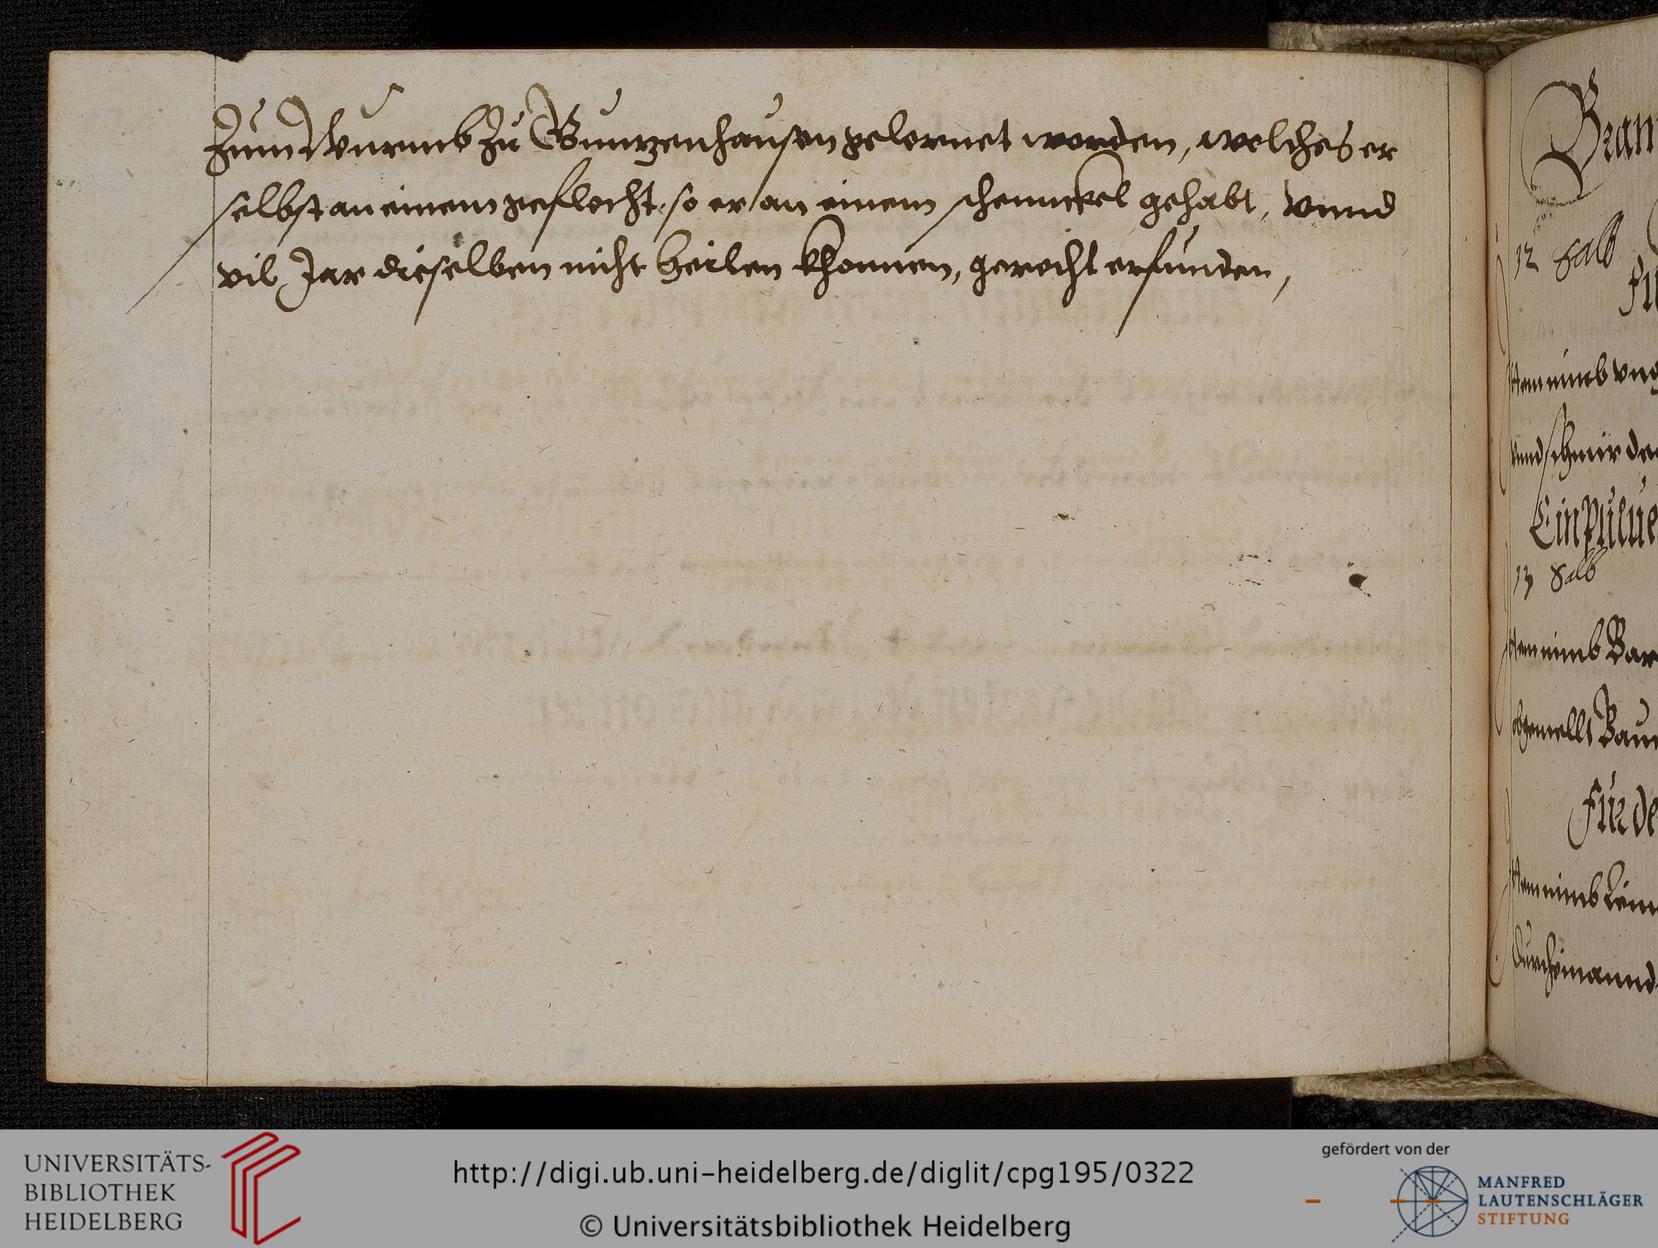 Zum Wurmb zu Guntzenhausen gelernet worden, welches er
selbst an einem geflecht, so er an einem schennckel gehabt, vnnd
vil Jar dieselben nicht heilen khonnen, gerecht erfunden,
Bran
12 Salb
Fü
Item nimb vng
vnnd schmir de
Ein Pulue
13 Salb
Item nimb Bar
abgemellt Baum
Für de
Item nimb
durcheinannd
UNIVERSITÄTS-
BIBLIOTHEK
HEIDELBERG
http://digi.ub.uni-heidelberg.de/diglit/cpg195/0322
© Universitätsbibliothek Heidelberg
gefördert von der
MANFRED
LAUTENSCHLÄGER
STIFTUNG